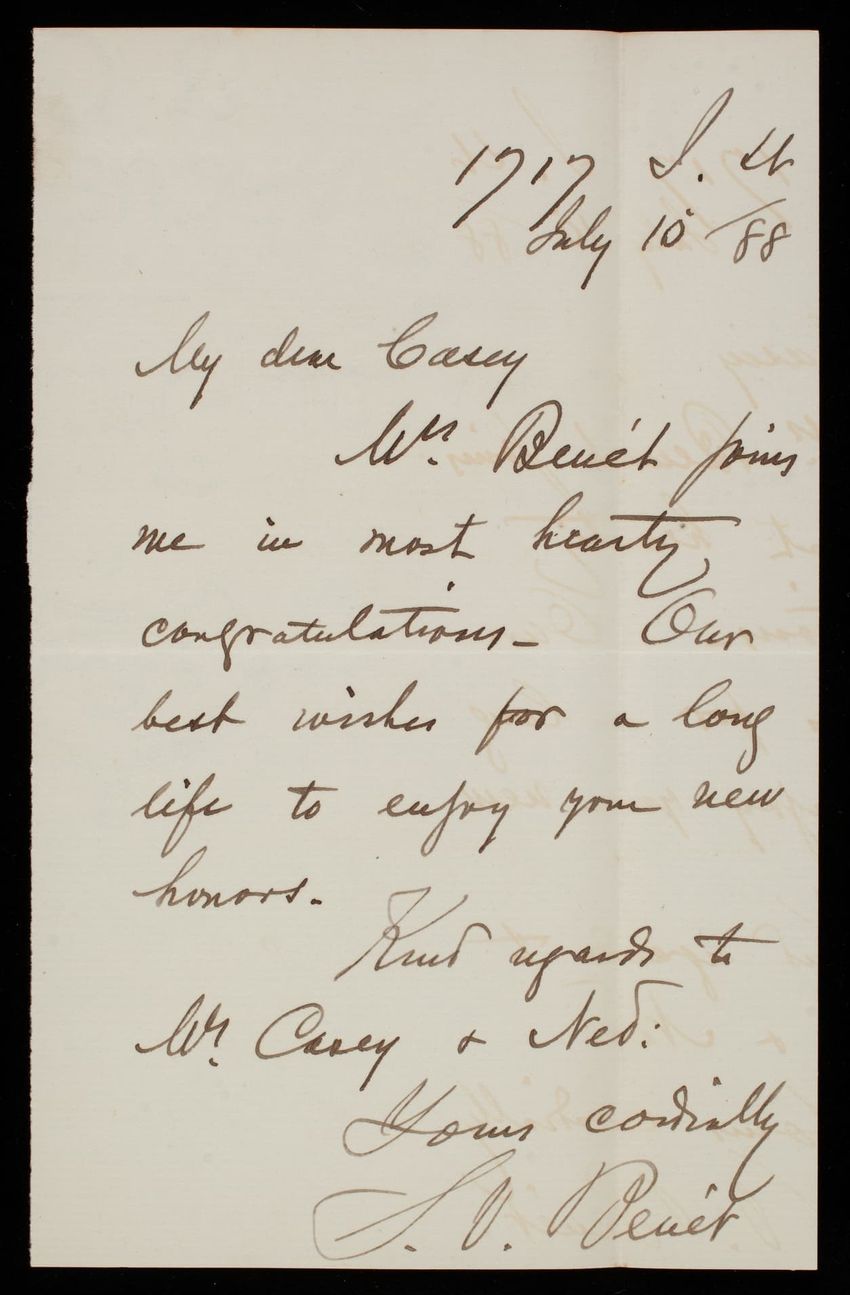 1717 I. St
July 10/88
My dear Casey
Mrs. Benét joins
me in most hearty
congratulations - Our
best wishes for a long
life to enjoy your new
honors.
Kind regards to
Mrs. Casey & Ned:
Yours cordially
S. V. Benét